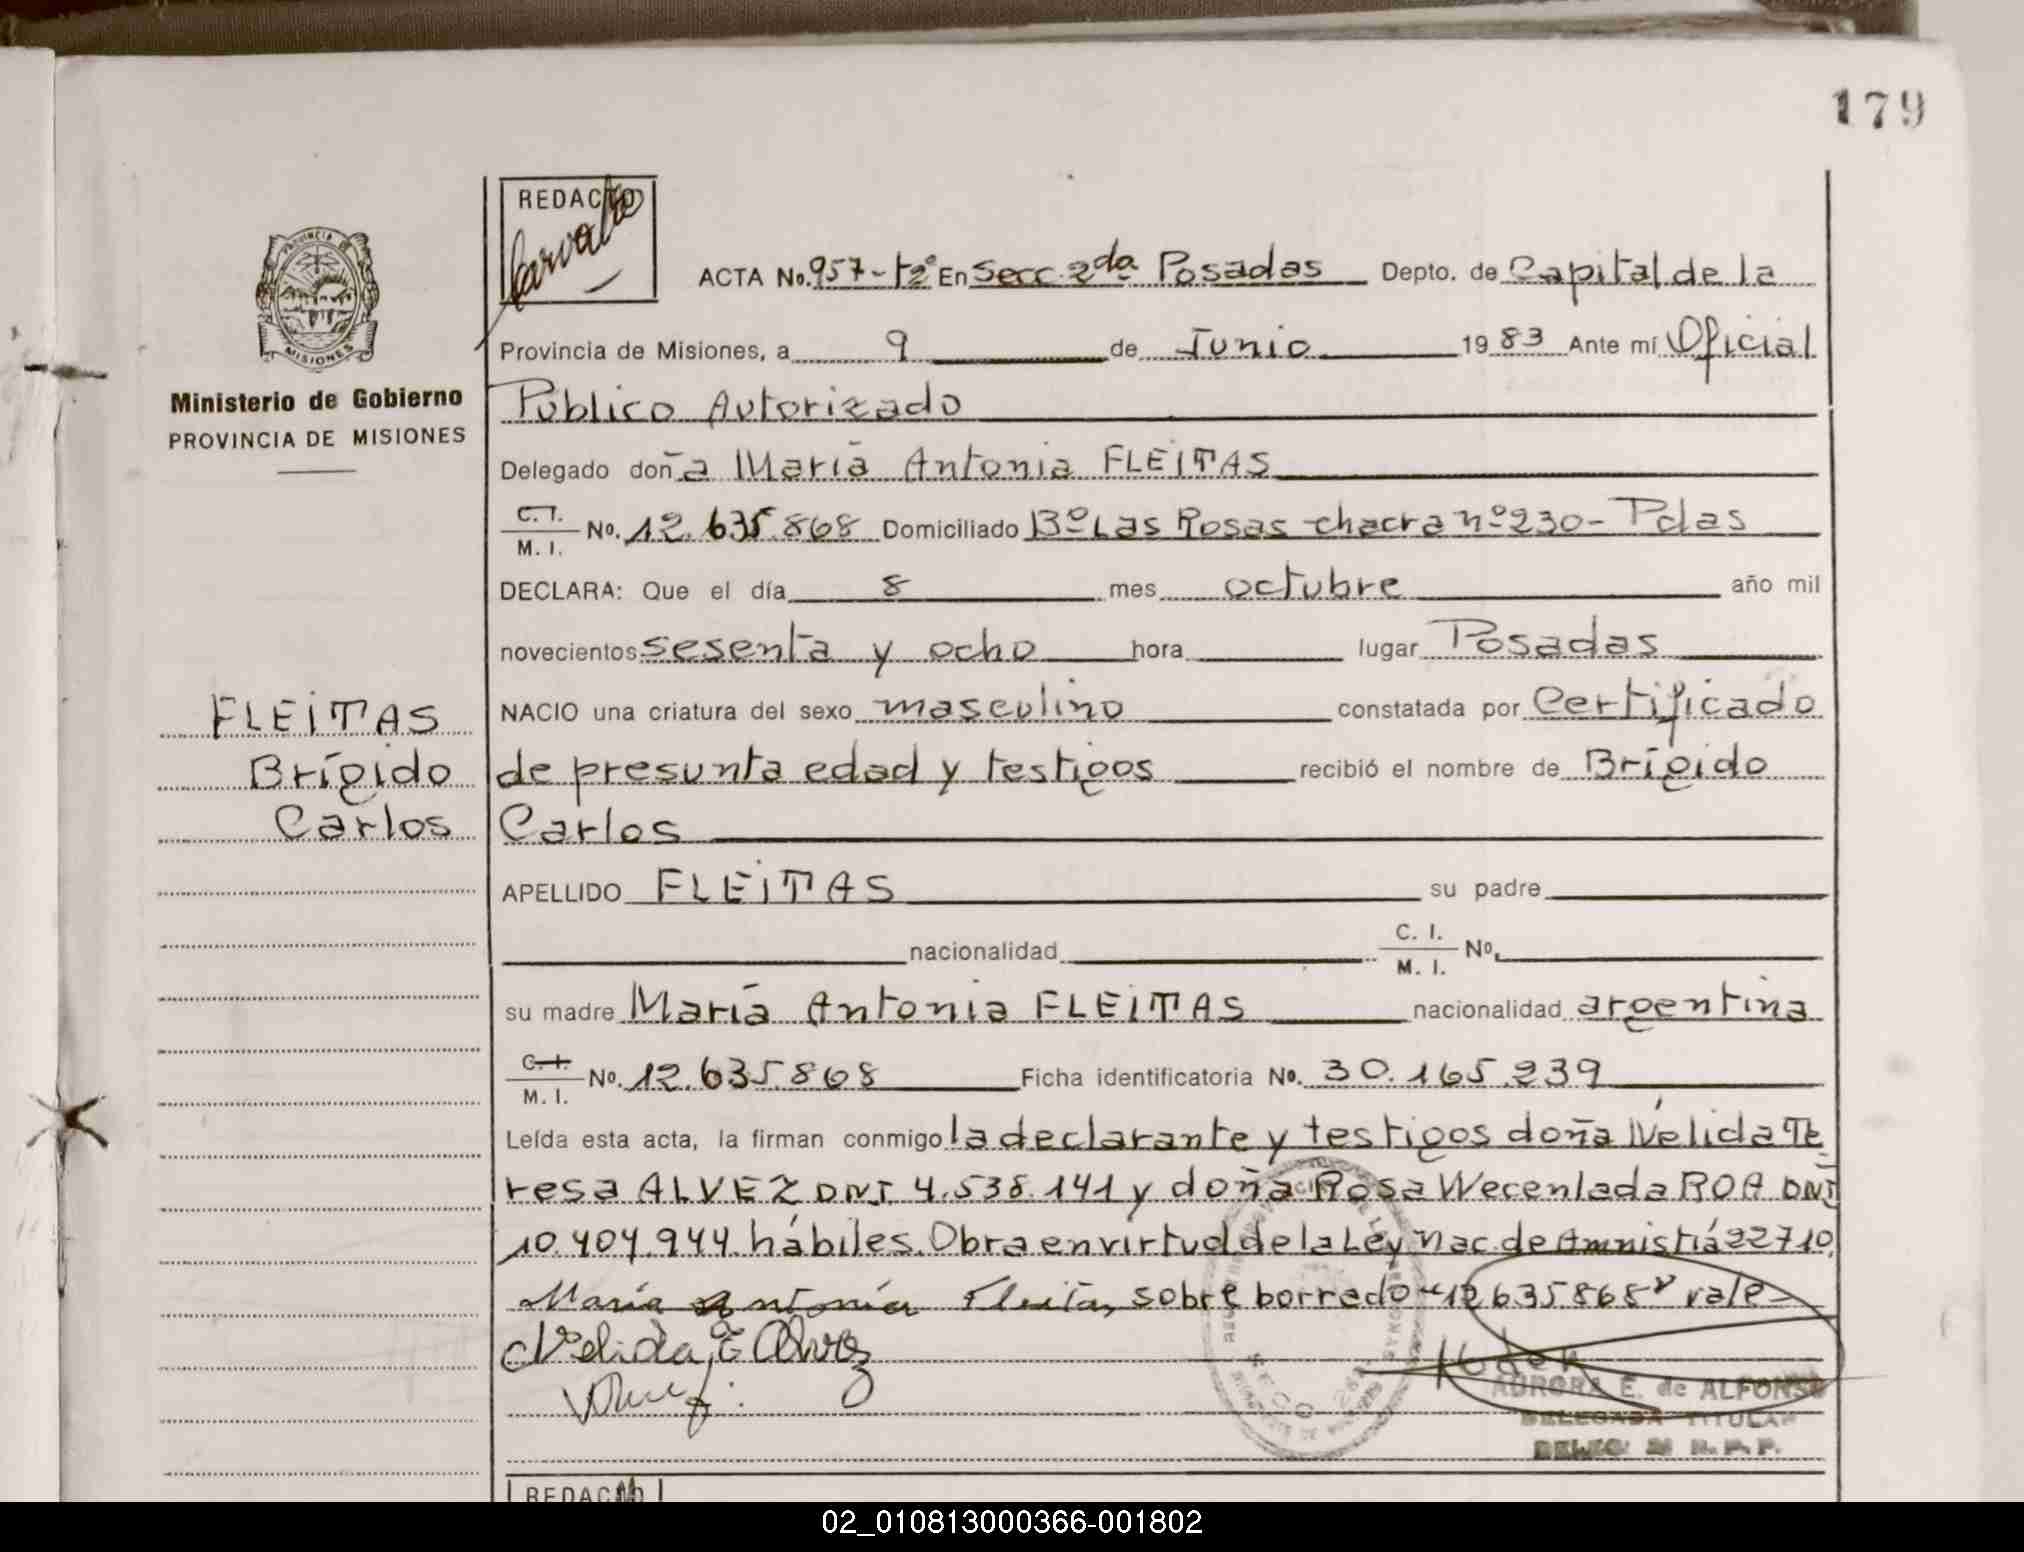 179
REDACTO
Carvalho
ACTA No. 957-tº2 En Secc. 2da Posadas Depto. de Capital de la
Provincia de Misiones, a 9 de Junio 1983 Ante mí Oficial
Público Autorizado
PROVINCIA DE
MISIONES
Ministerio de Gobierno
PROVINCIA DE MISIONES
Delegado doña María Antonia FLEITAS
C. I. / M. I. No. 12.635.868 Domiciliado Bº Las Rosas chacra nº 230 - Pdas
DECLARA: Que el día 8 mes octubre año mil
novecientos sesenta y ocho hora lugar Posadas
FLEITAS
Brígido
Carlos
NACIO una criatura del sexo masculino constatada por Certificado
de presunta edad y testigos recibió el nombre de Brígido
Carlos
APELLIDO FLEITAS su padre
nacionalidad C. I. / M. I. No.
su madre María Antonia FLEITAS nacionalidad argentina
C. I. / M. I. No. 12.635.868 Ficha identificatoria No. 30.165.239
Leída esta acta, la firman conmigo la declarante y testigos doña Nélida Te
resa ALVEZ DNI. 4.538.141 y doña Rosa Wecenlada ROA DNI
10.404.944 hábiles. Obra en virtud de la Ley Nac. de Amnistiá 22710.
María Antonia Fleitas, sobre borrado "12635.868" vale-
Nelida T Alvez
AURORA E. de ALFONSO
DELEGADA TITULAR
REDACTO
02_010813000366-001802